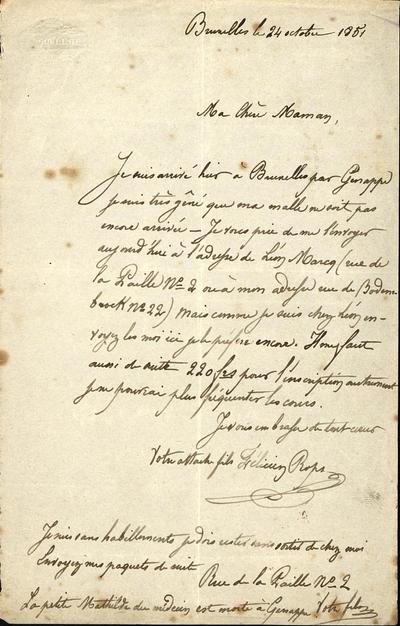 Bruxelles le 24 octobre 1851
Ma chère Maman,
Je suis arrivé hier à Bruxelles par Genappe
je suis très gêné que ma malle ne soit pas
encore arrivée – Je vous prie de me l'envoyer
aujourd'hui à l'adresse de Léon Marcq (rue de
la Paille No 2 ou à mon adresse rue de Bodem-
broek No 22) mais comme je suis chez Léon en-
voyez les moi ici je le préfère encore. Il me faut
aussi de suite 220 frs pour l'inscription autrement
je ne pourrai plus fréquenter les cours.
Je vous embrasse de tout cœur
Votre attaché fils Félicien Rops
Je suis sans habillements je dois rester sans sortir de chez moi
Envoyez mes paquets de suite
Rue de la Paille No 2
La petite Mathilde du médecin est morte à Genappe Votre félicien